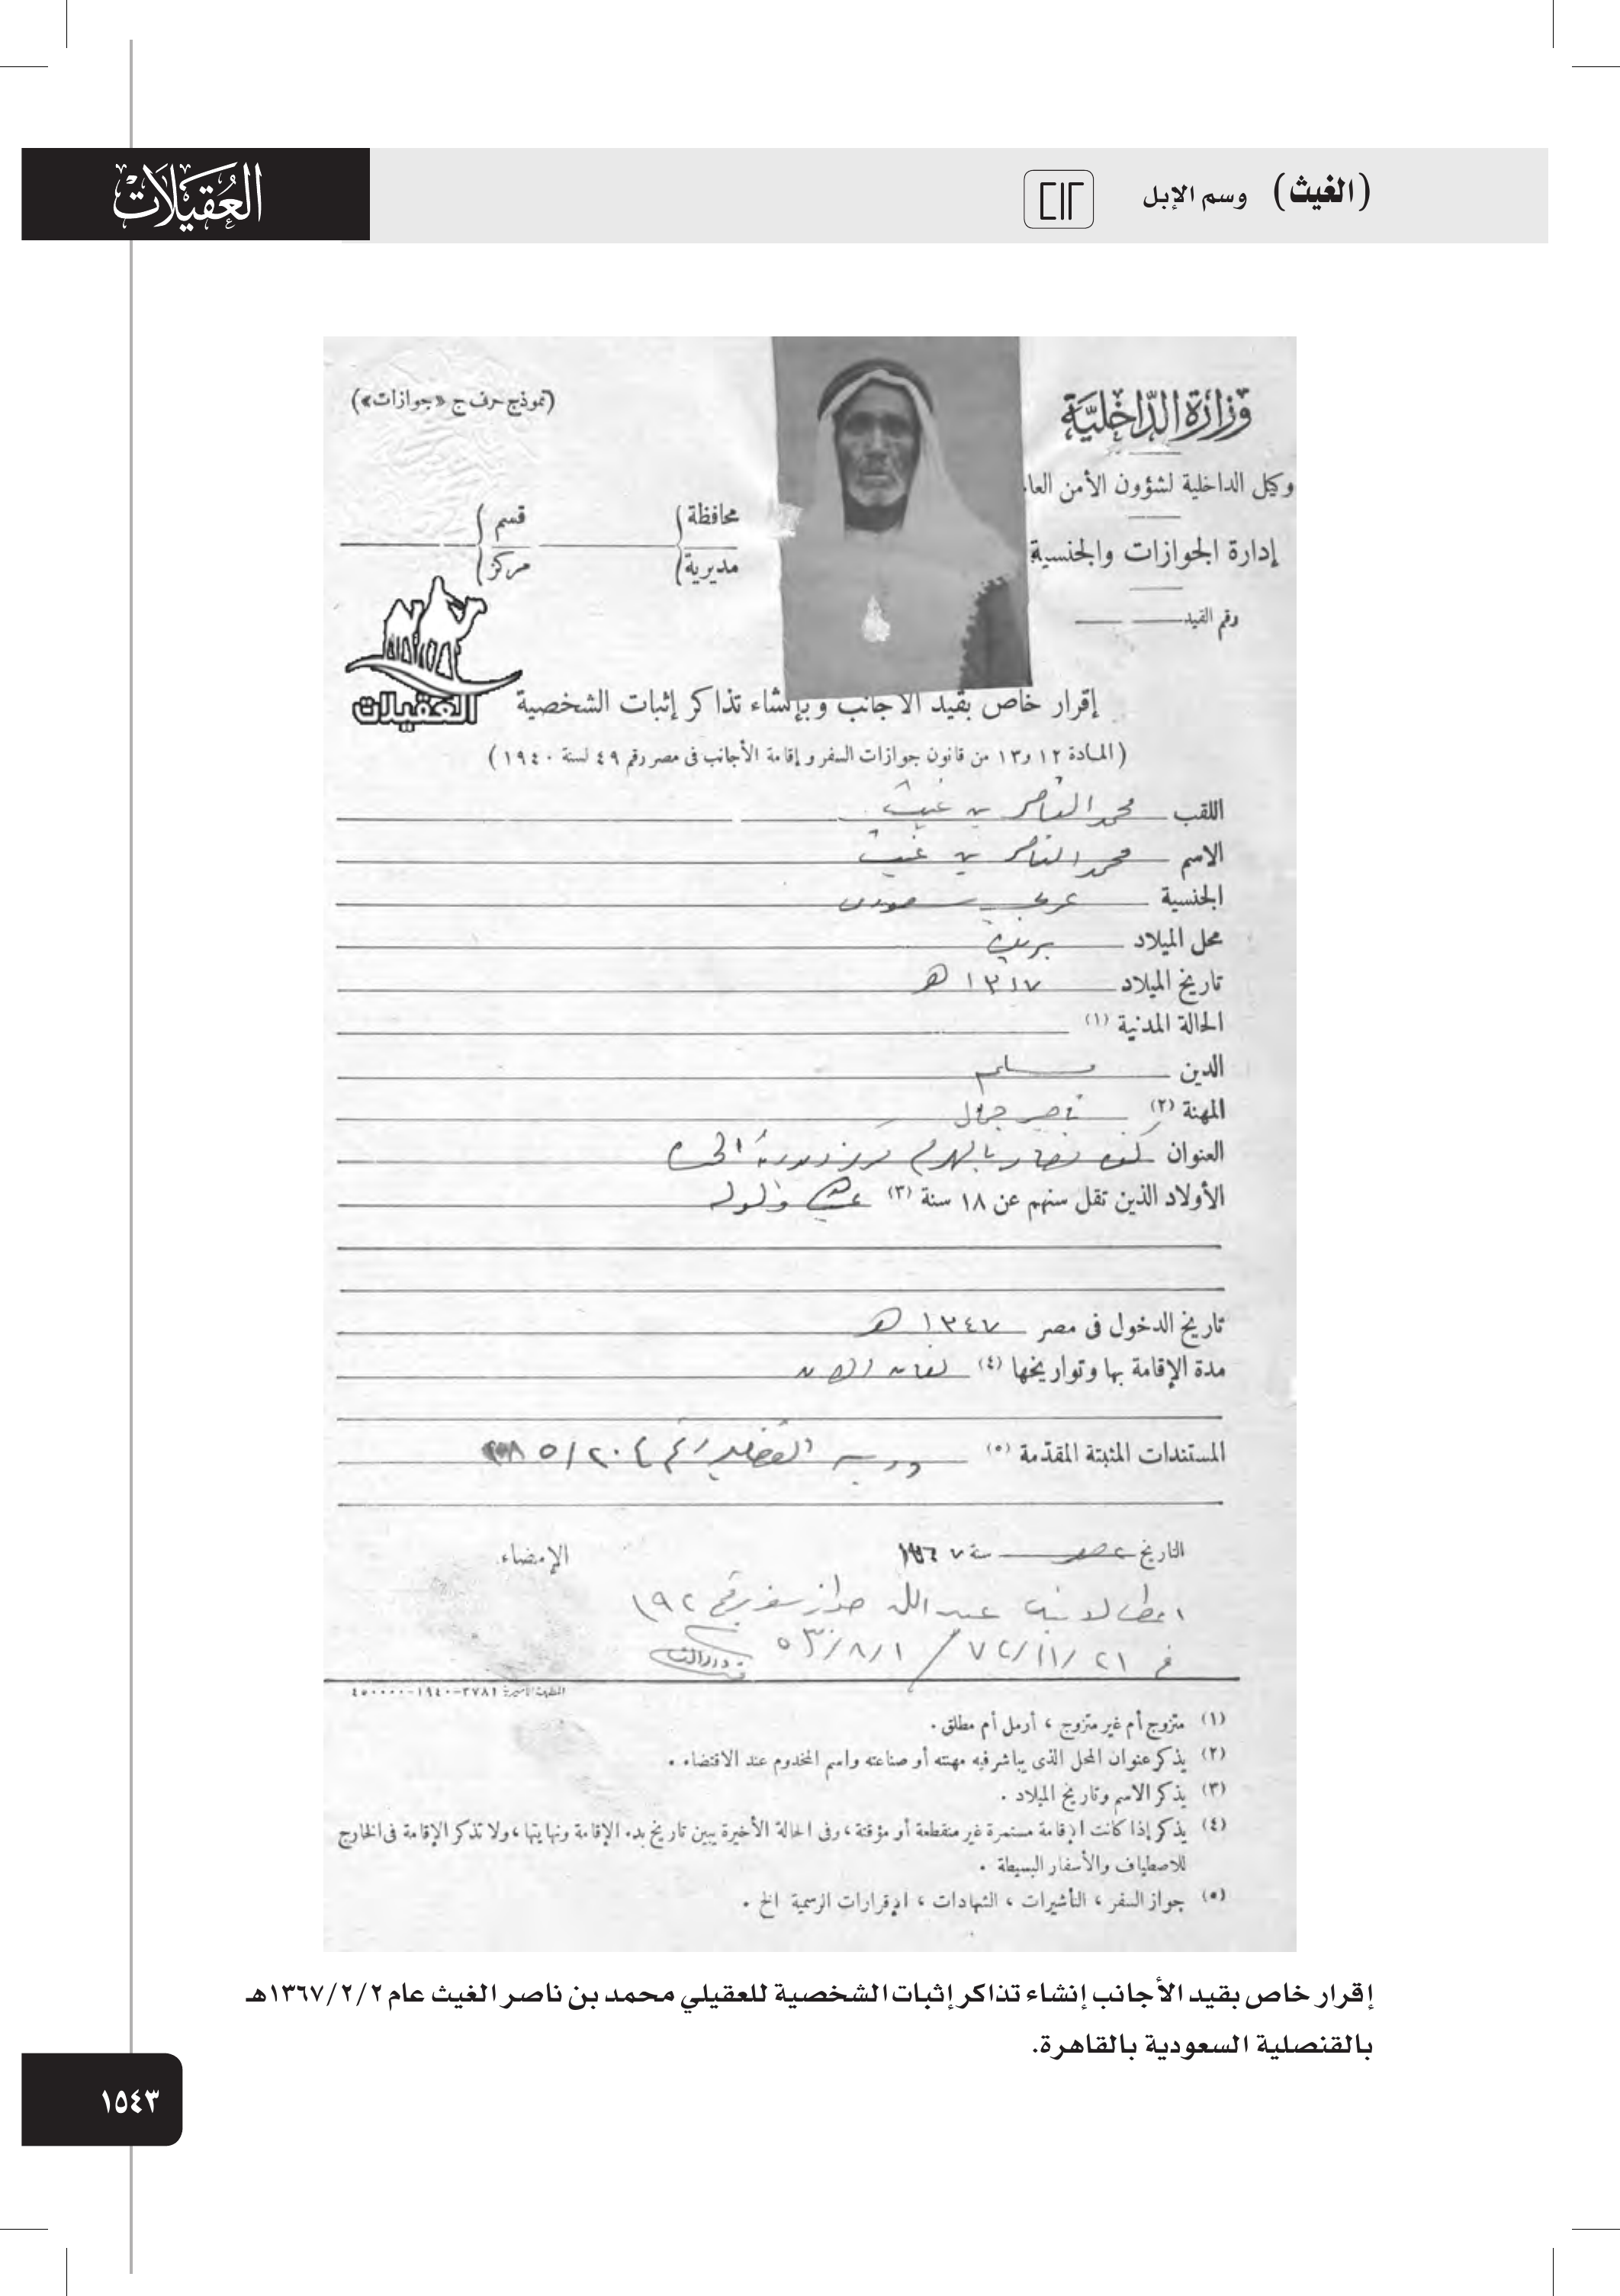 (الغيث) وسم الإبل
العقيلات
وزارة الداخلية
(نموذج حرف ج «جوازات»)
وكيل الداخلية لشؤون الأمن العا
محافظة
قسم
إدارة الجوازات والجنسية
مديرية
مركز
رقم القيد
العقيلات
إقرار خاص بقيد الأجانب وبإنشاء تذاكر إثبات الشخصية
(المادة ١٢ و١٣ من قانون جوازات السفر وإقامة الأجانب فى مصر رقم ٤٩ لسنة ١٩٤٠)
اللقب محمد الناصر بن غيث
الاسم محمد الناصر بن غيث
الجنسية عربي سعودي
محل الميلاد بريدة
تاريخ الميلاد ١٣١٧ هـ
الحالة المدنية (١)
الدين مسلم
المهنة (٢) تاجر جمال
العنوان كفر نصار بالهرم مركز ومديرية الجيزة
الأولاد الذين تقل سنهم عن ١٨ سنة (٣)
تاريخ الدخول فى مصر ١٣٤٧ هـ
مدة الإقامة بها وتواريخها (٤) لغاية الآن
المستندات المثبتة المقدمة (٥)
التاريخ ٢ صفر سنة ١٣٦٧
الإمضاء
عبد الله جواز سفر رقم ١٩٢
في ٢١/١١/٧٢ / ١/٨/٥٣
(١) متزوج أم غير متزوج ، أرمل أم مطلق .
(٢) يذكر عنوان المحل الذى يباشر فيه مهنته أو صناعته واسم المخدوم عند الاقتضاء .
(٣) يذكر الاسم وتاريخ الميلاد .
(٤) يذكر إذا كانت الإقامة مستمرة غير منقطعة أو مؤقتة ، وفى الحالة الأخيرة يبين تاريخ بدء الإقامة ونهايتها ، ولا تذكر الإقامة فى الخارج
للاصطياف والأسفار البسيطة .
(٥) جواز السفر ، التأشيرات ، الشهادات ، الإقرارات الرسمية الخ .
إقرار خاص بقيد الأجانب إنشاء تذاكر إثبات الشخصية للعقيلي محمد بن ناصر الغيث عام ١٣٦٧/٢/٢هـ
بالقنصلية السعودية بالقاهرة.
١٥٤٣